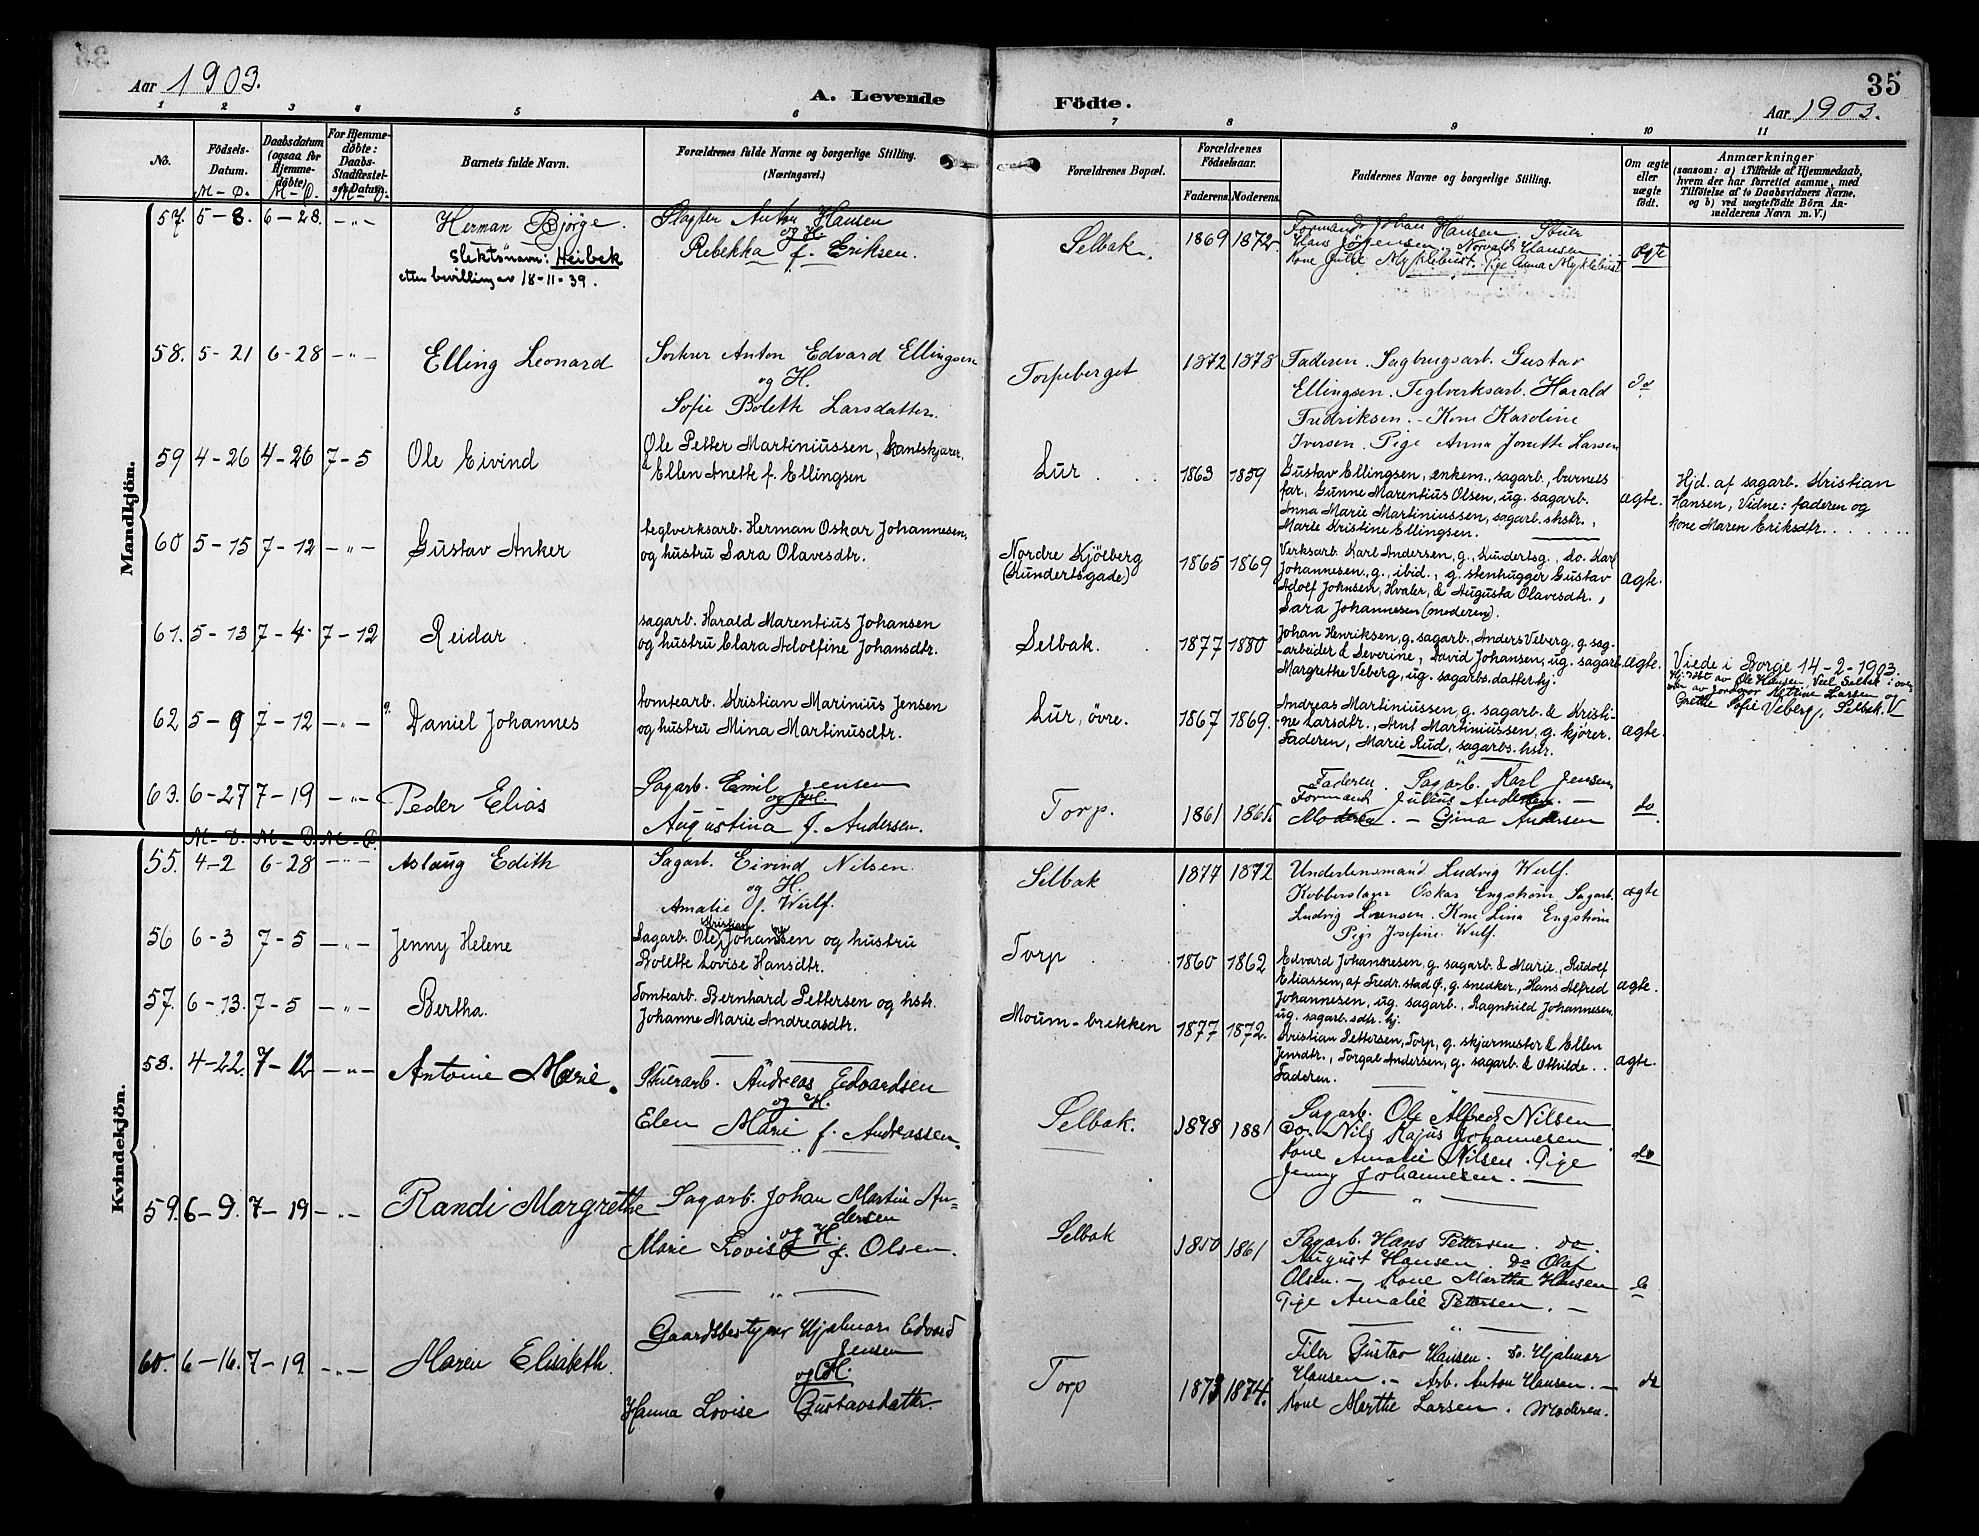 Aar 1903.
A. Levende Födte.
35
Aar 1903.
1 2 3 4 5 6 7 8 9 10 11
No.
Födsels-Datum.
Daabsdatum (ogsaa for Hjemme-döbte)
For Hjemme-döbte: Daabs-Stadfæstel-ses Datum.
Barnets fulde Navn.
Forældrenes fulde Navne og borgerlige Stilling.
(Næringsvei.)
Forældrenes Bopæl.
Forældrenes Födselsaar.
Faderens. Moderens.
Faddernes Navne og borgerlige Stilling.
Om ægte eller uægte födt.
Anmærkninger
(saasom: a) i Tilfælde af Hjemmedaab,
hvem der har forrettet samme, med
Tilföielse af to Daabsvidners Navne,
og b) ved uægtefödte Börn An-
melderens Navn m. V.)
M - D. M - D. M - D.
Mandkjön.
57. 5-8. 6-28. -"-
Herman Bjørge.
Slektsnavn: Heibek
etter bevilling av 18-11-39.
Anton Hansen
og H.
Rebekka f. Eriksen.
Selbak. 1869 1872
Formand Johan Hansen.
Hans Jörgensen. Norvald Hansen
Kone Julie Myklebust. Pige Anna Myklebust
ægte
58. 5-21 6-28 -"-
Elling Leonard
Sorterer Anton Edvard Ellingsen
og H.
Sofie Bolette Larsdatter.
Torpeberget 1872 1878
Faderen. Sagbrugsarb. Gustav
Ellingsen. Teglverksarb. Harald
Fredriksen. - Kone Karoline
Iversen. Pige Anna Jonette Larsen
do
59 4-26 4-26 7-5
Ole Eivind
Ole Petter Martiniussen, kantskjærer,
& Ellen Anette f. Ellingsen
Lur 1863 1859
Gustav Ellingsen, enkem., sagarb., barnets
far, Gunne Marentius Olsen, ug. sagarb.
Anna Marie Martiniussen, sagarb.shstr.,
Marie Kristine Ellingsen.
ægte.
Hjd. af sagarb. Kristian
Hansen, Vidne: faderen og
kone Maren Eriksdtr.
60 5-15 7-12 -"-
Gustav Anker
teglverksarb. Herman Oskar Johannesen,
og hustru Sara Olavesdtr.
Nordre Kjölberg
(Kundertsgade)
1865 1869
Verksarb. Karl Andersen, g., Kundertsg., do. Karl
Johannesen, g., ibid., g. stenhugger Gustav
Adolf Johnsen, Hvaler, & Augusta Olavesdtr.,
Sara Johannesen (moderen).
ægte.
61. 5-13 7-4. 7-12
Reidar
sagarb. Harald Marentius Johansen
og hustru Clara Adolfine Johansdtr.
Selbak. 1877 1880
Johan Henriksen, g. sagarb., Anders Veberg, g. sag-
-arbeider & Severine, David Johansen, ug. sagarb.
Margrethe Veberg, ug. sagarbs.datter hj.
ægte.
Viede i Borge 14-2-1903.
Hj. døbt av Ole Hansen,
av jordmor Kettine Larsen og
Grethe Sofie Veberg, Selbak.
62 5-9 7-12 -"-
Daniel Johannes
tomtearb. Kristian Marinius Jensen
og hustru Mina Martinusdtr.
Lur, øvre. 1867 1869.
Andreas Martiniussen, g. sagarb. & Kristi-
ne Larsdtr., Arnt Martiniussen, g. kjører.
Faderen, Marie Rud, sagarbs. hstr.
ægte.
63. 6-27 7-19 -"-
Peder Elias
Sagarb. Emil Jensen
Augustina f. Andersen.
Torp. 1861 1865.
Faderen. Sagarb. Karl Jensen
Formand Julius Andersen. -
Moderen. - Gina Andersen
do.
Kvindekjön.
M - D. M - D. M - D.
55. 4-2 6-28 -"-
Aslaug Edith
Sagarb. Eivind Nilsen.
og H.
Amalie f. Wulf.
Selbak 1877 1872
Underlensmand Ludvig Wulf.
Oskar Engstrøm Sagarb.
Ludvig Lorensen. Kone Lina Engstrøm
Pige Josefine Wulf.
ægte
56 6-3 7-5 -"-
Jenny Helene
Kristian
Sagarb. Ole Johansen og hustru
Bolette Lovise Hansdtr.
Torp 1860 1862
Edvard Johannesen, g. sagarb. & Marie, Rudolf
Eliassen, af Fredr.stad Ø., g. snedker, Hans Alfred
Johannesen, ug. sagarb., Ragnhild Johannesen,
ug. sagarb.sdtr. hj.
ægte.
57. 6-13. 7-5 -"-
Bertha.
Tomtearb. Bernhard Pettersen og hstr.
Johanne Marie Andreasdtr.
Moum-brekken 1877 1872.
Kristian Pettersen, Torp, g. skjærmester & Ellen
Jensdtr., Torgal Andersen, g. sagarb. & Othilde.
Faderen.
ægte.
58. 4-22. 7-12 -"-
Antonie Marie.
Stuerarb. Andreas Edvardsen
og H.
Elen Marie f. Andreassen.
Selbak. 1878 1881
Sagarb. Ole Alfred Nilsen
do. Nils Kajus Johannesen
Kone Amalie Nilsen. Pige
Jenny Johannesen.
do
59. 6-9. 7-19 -"-
Randi Margrethe
Sagarb. Johan Martin An=
dersen
og H.
Marie Lovise f. Olsen.
Selbak 1850 1861
Sagarb. Hans Pettersen. do.
August Hansen. do Olaf
Olsen. - Kone Martha Hansen
Pige Amalie Pettersen. -
60. 6-16. 7-19 -"-
Maren Elisabeth.
Gaardsbestyrer Hjalmar Edvard
Jensen
og H.
Hanna Lovise Gustavsdatter.
Torp 1873 1874.
Filer Gustav Hansen. do. Hjalmar
Hansen. - Arb. Anton Hansen. -
Kone Marthe Larsen. Moderen.
do